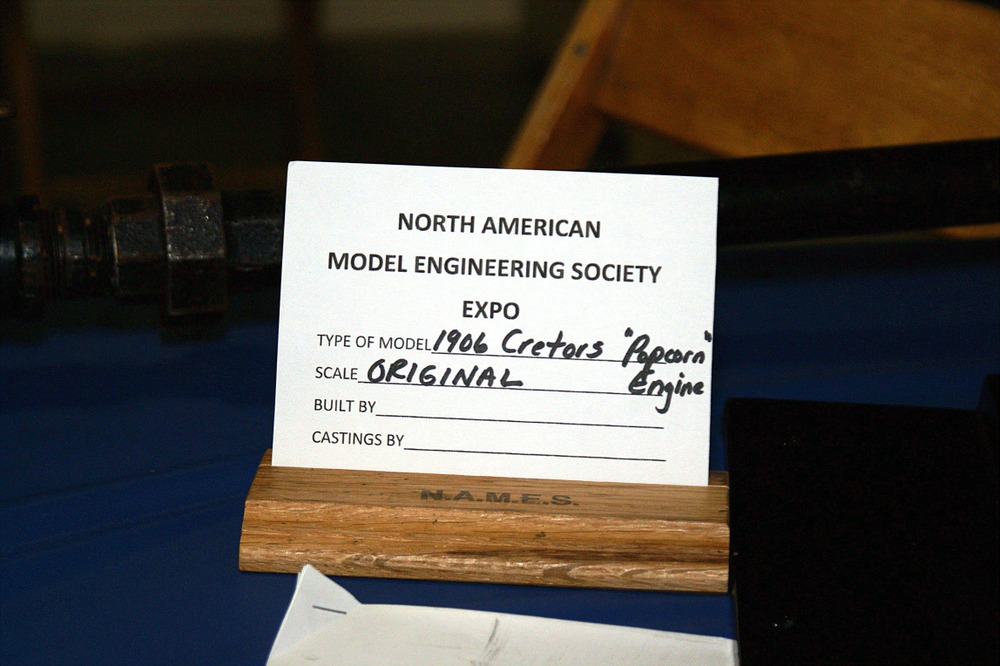 NORTH AMERICAN
MODEL ENGINEERING SOCIETY
EXPO
TYPE OF MODEL 1906 Cretors "Popcorn"
SCALE ORIGINAL Engine
BUILT BY
CASTINGS BY
N.A.M.E.S.